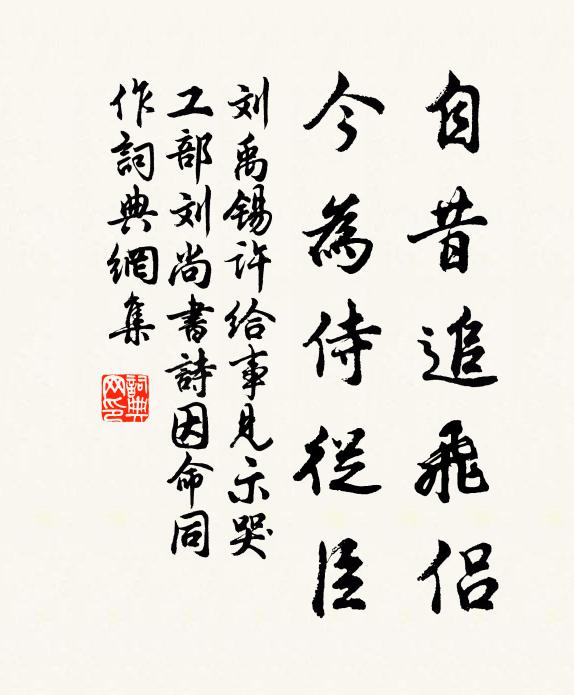 自昔追飛侶
今為侍從臣
刘禹锡許给事見示哭
工部刘尚書詩因命同
作詞典網集
詞典网印